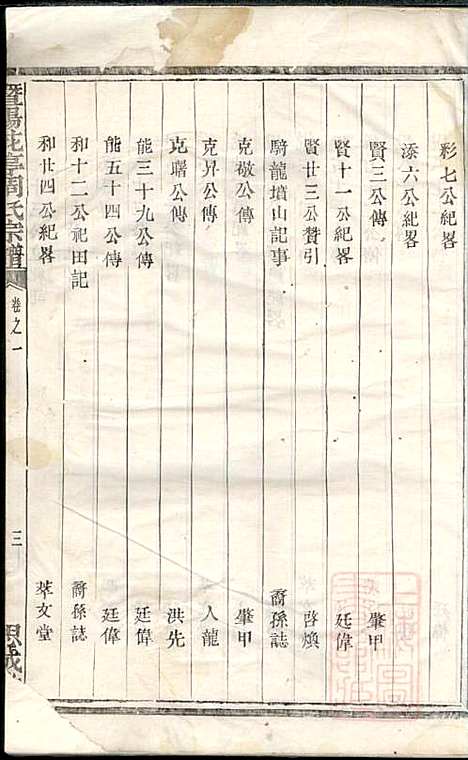 彩七公紀畧
添六公紀畧
賢三公傳 肇甲
賢十一公紀畧 廷偉
賢廿三公贊引 啓煥
騎龍墳山記事 裔孫誌
克敬公傳 肇甲
克昇公傳 人龍
克曙公傳 洪先
能三十九公傳 廷偉
能五十四公傳 廷偉
和十二公祀田記 裔孫誌
和廿四公紀畧 萃文堂
暨陽花亭周氏宗譜 卷之一 三 思成